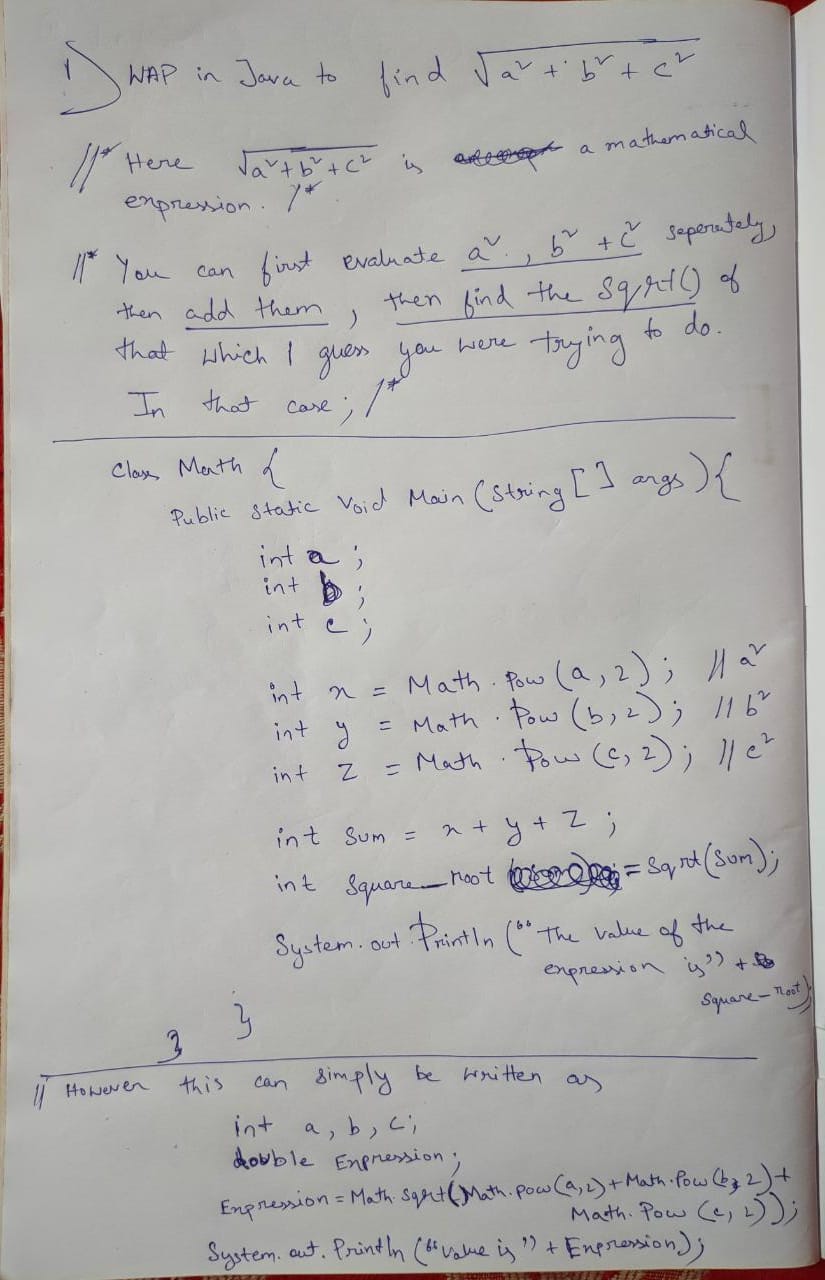 1) WAP in Java to find √a² + b² + c²
//* Here √a²+b²+c² is a mathematical
expression. /*
//* You can first evaluate a², b² + c² seperately,
then add them, then find the Sqrt() of
that which I guess you were trying to do.
In that case; /*
Class Math {
Public static Void Main (String [] args) {
int a;
int b;
int c;
int x = Math.Pow(a,2); // a²
int y = Math.Pow(b,2); // b²
int z = Math.Pow(c,2); // c²
int Sum = x + y + z;
int Square_root = Sqrt(Sum);
System.out.Println ("The value of the
expression is" +
Square_root);
}
}
// However this can simply be written as
int a, b, c;
double Expression;
Expression = Math.Sqrt(Math.pow(a,2)+Math.Pow(b,2)+
Math.Pow(c,2));
System.out.Println ("value is" + Expression);